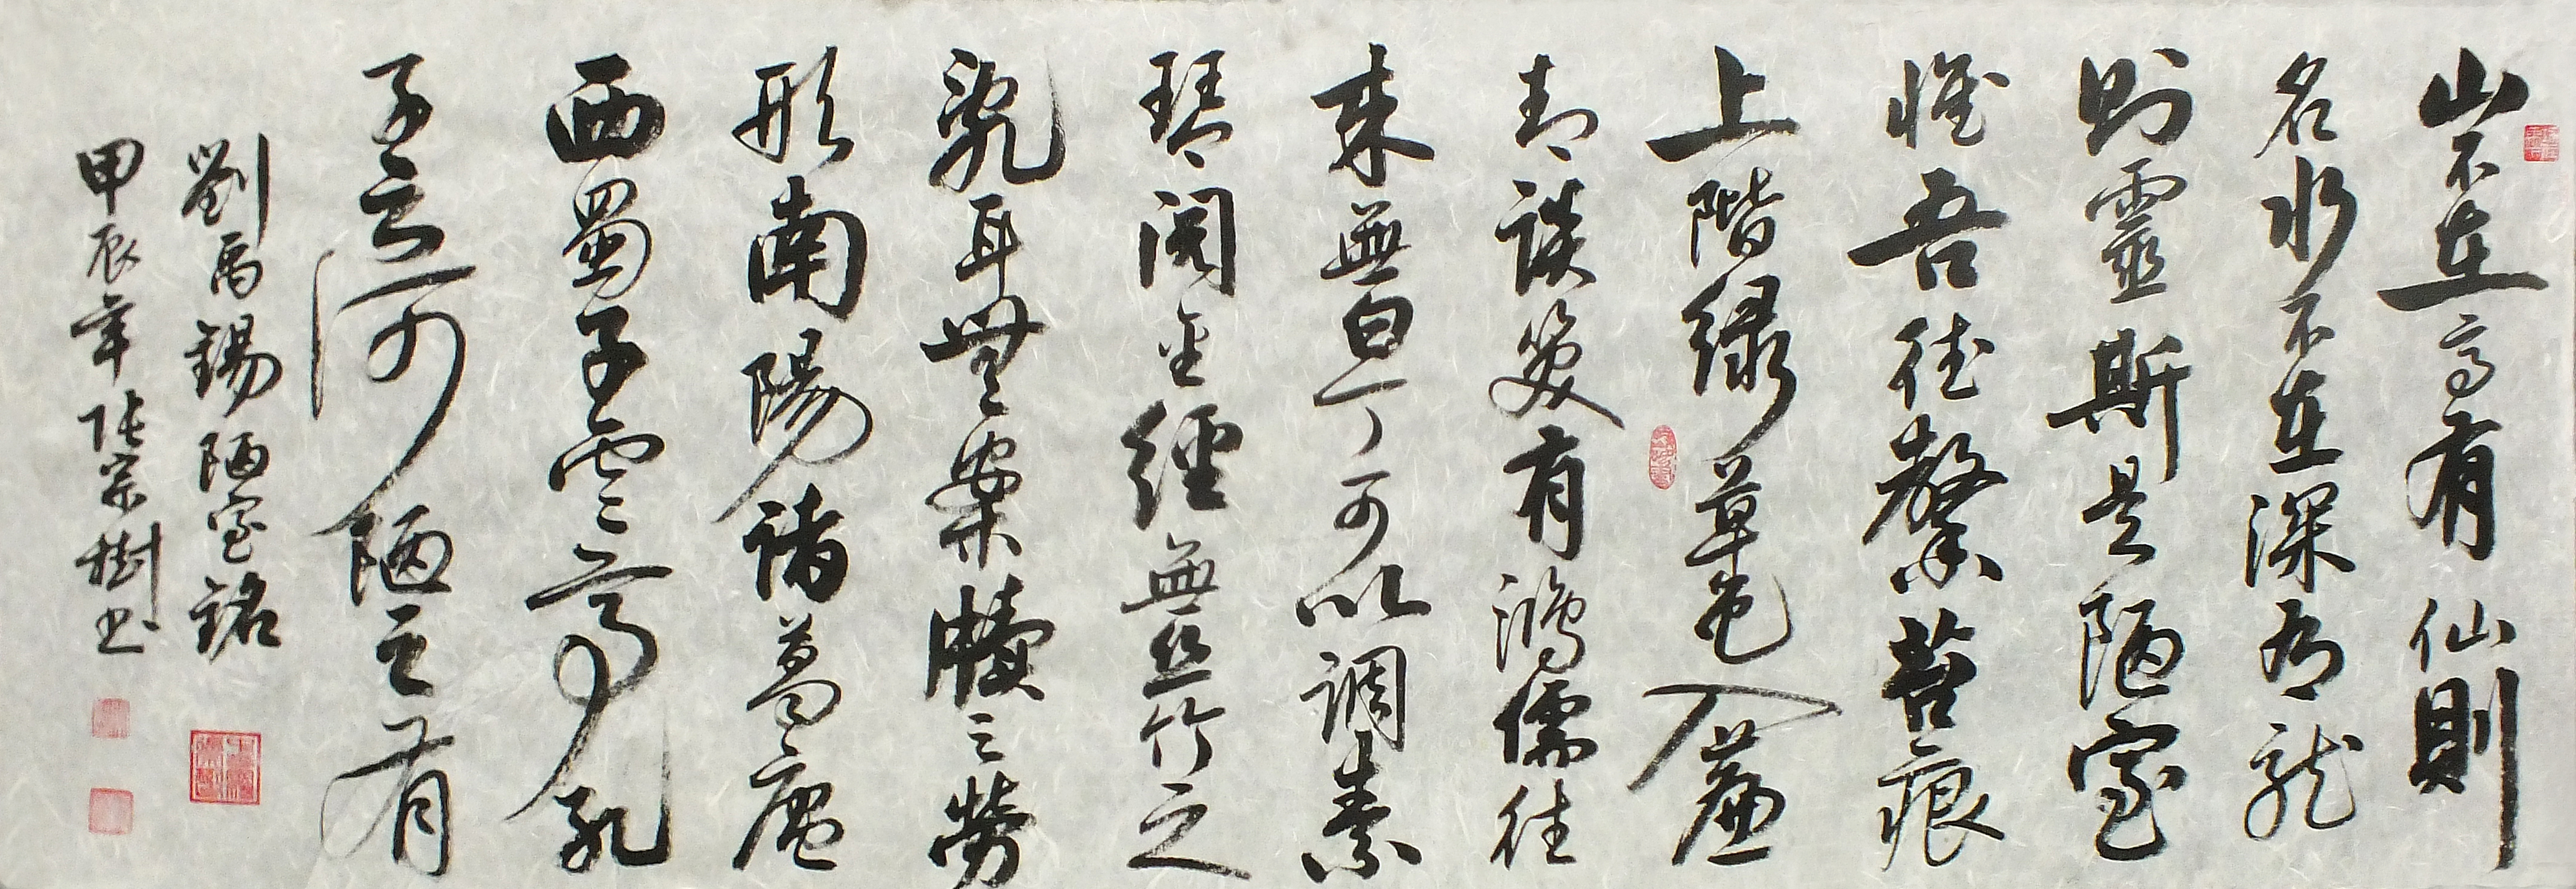 山不在高有仙則
名水不在深有龍
則靈斯是陋室
惟吾德馨苔痕
上階綠草色入簾
青談笑有鴻儒往
來無白丁可以調素
琴閱金經無絲竹之
亂耳無案牘之勞
形南陽諸葛廬
西蜀子雲亭孔
子云何陋之有
劉禹錫陋室銘
甲辰年張宗樹书